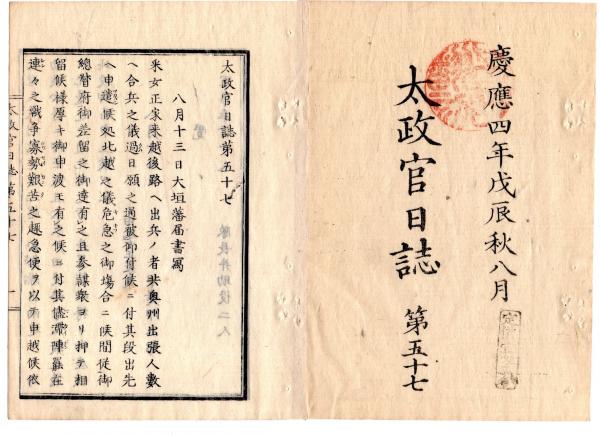 慶應四年戊辰秋八月
太政官日誌
第五十七
太政官日誌第五十七
八月十三日大垣藩届書寫
采女正家来越後路ヘ出兵ノ者共奥州出張人数
ヘ合兵之儀過日願之通被仰付候ニ付其段出先
ヘ申遣候処北越之儀危急之御場合ニ候間従御
總督府御差留之御達有之且参謀衆ヨリ押テ相
留候様厚キ御申渡モ有之候ニ付其儘滞陣罷在
連々之戦争寡勢艱苦之趣急便ヲ以テ申越候依
太政官日誌第五十七
一